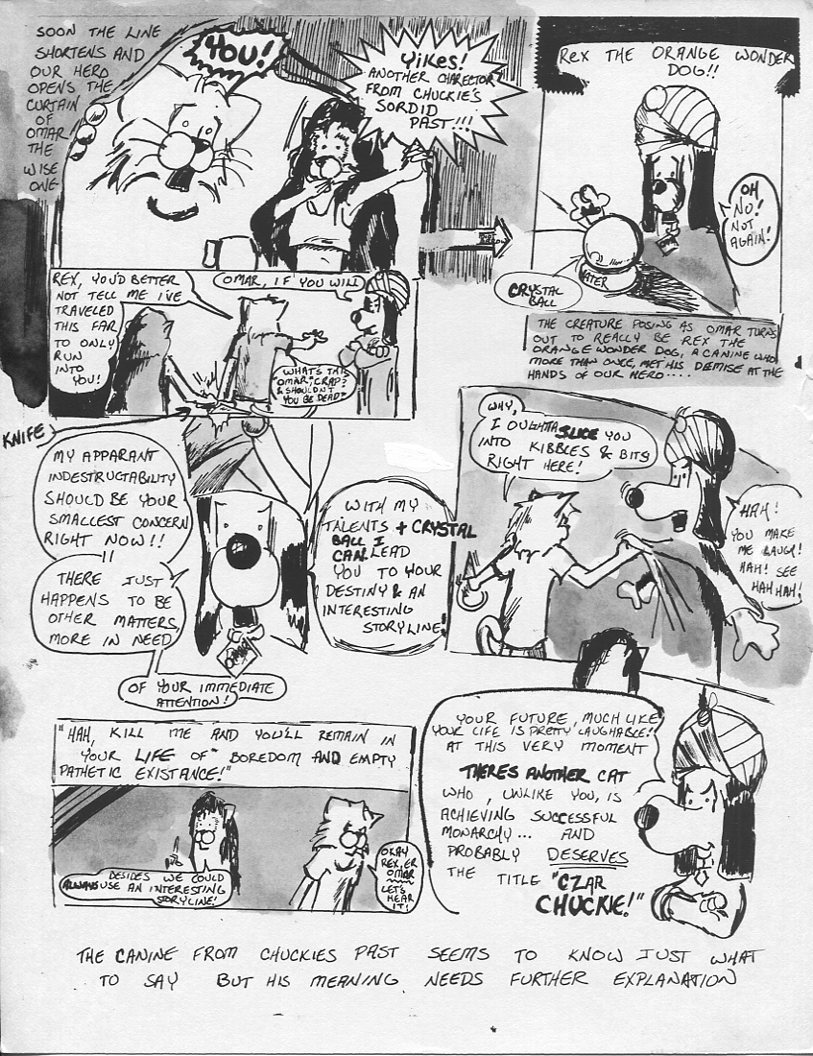 SOON THE LINE
SHORTENS AND
OUR HERO
OPENS THE
CURTAIN
OF
OMAR
THE
WISE
ONE
YOU!
YiKES!
ANOTHER CHARECTOR
FROM CHUCKIE'S
SORDID
PAST!!!
REX THE ORANGE WONDER
DOG!!
OH
NO!
NOT
AGAIN!
CRYSTAL
BALL
THE CREATURE POSING AS OMAR TURNS
OUT TO REALLY BE REX THE
ORANGE WONDER DOG, A CANINE WHO
MORE THAN ONCE, MET HIS DEMISE AT THE
HANDS OF OUR HERO....
REX, YOU'D BETTER
NOT TELL ME I'VE
TRAVELED
THIS FAR
TO ONLY
RUN
INTO
YOU!
OMAR, IF YOU WILL
WHAT'S THIS
OMAR, CRAP?
& SHOULDN'T
YOU BE DEAD?
KNIFE
MY APPARANT
INDESTRUCTABILITY
SHOULD BE YOUR
SMALLEST CONCERN
RIGHT NOW!!
THERE JUST
HAPPENS TO BE
OTHER MATTERS,
MORE IN NEED
OF YOUR IMMEDIATE
ATTENTION!
WITH MY
TALENTS + CRYSTAL
BALL I
CAN LEAD
YOU TO YOUR
DESTINY & AN
INTERESTING
STORYLINE!
OMAR
WHY,
I OUGHTTA SLICE YOU
INTO KIBBLES & BITS
RIGHT HERE!
HAH!
YOU MAKE
ME LAUGH!
HAH! SEE
HAH HAH!
"HAH, KILL ME AND YOU'LL REMAIN IN
YOUR LIFE OF" BOREDOM AND EMPTY
PATHETIC EXISTANCE!"
DESIDES WE COULD
ALWAYS USE AN INTERESTING
STORYLINE!
OKAY
REX, ER
OMAR
LET'S
HEAR
IT!
YOUR FUTURE, MUCH LIKE
YOUR LIFE IS PRETTY LAUGHABLE!
AT THIS VERY MOMENT
THERES ANOTHER CAT
WHO, UNLIKE YOU, IS
ACHIEVING SUCCESSFUL
MONARCHY... AND
PROBABLY DESERVES
THE TITLE "CZAR
CHUCKIE!"
THE CANINE FROM CHUCKIES PAST SEEMS TO KNOW JUST WHAT
TO SAY BUT HIS MEANING NEEDS FURTHER EXPLANATION